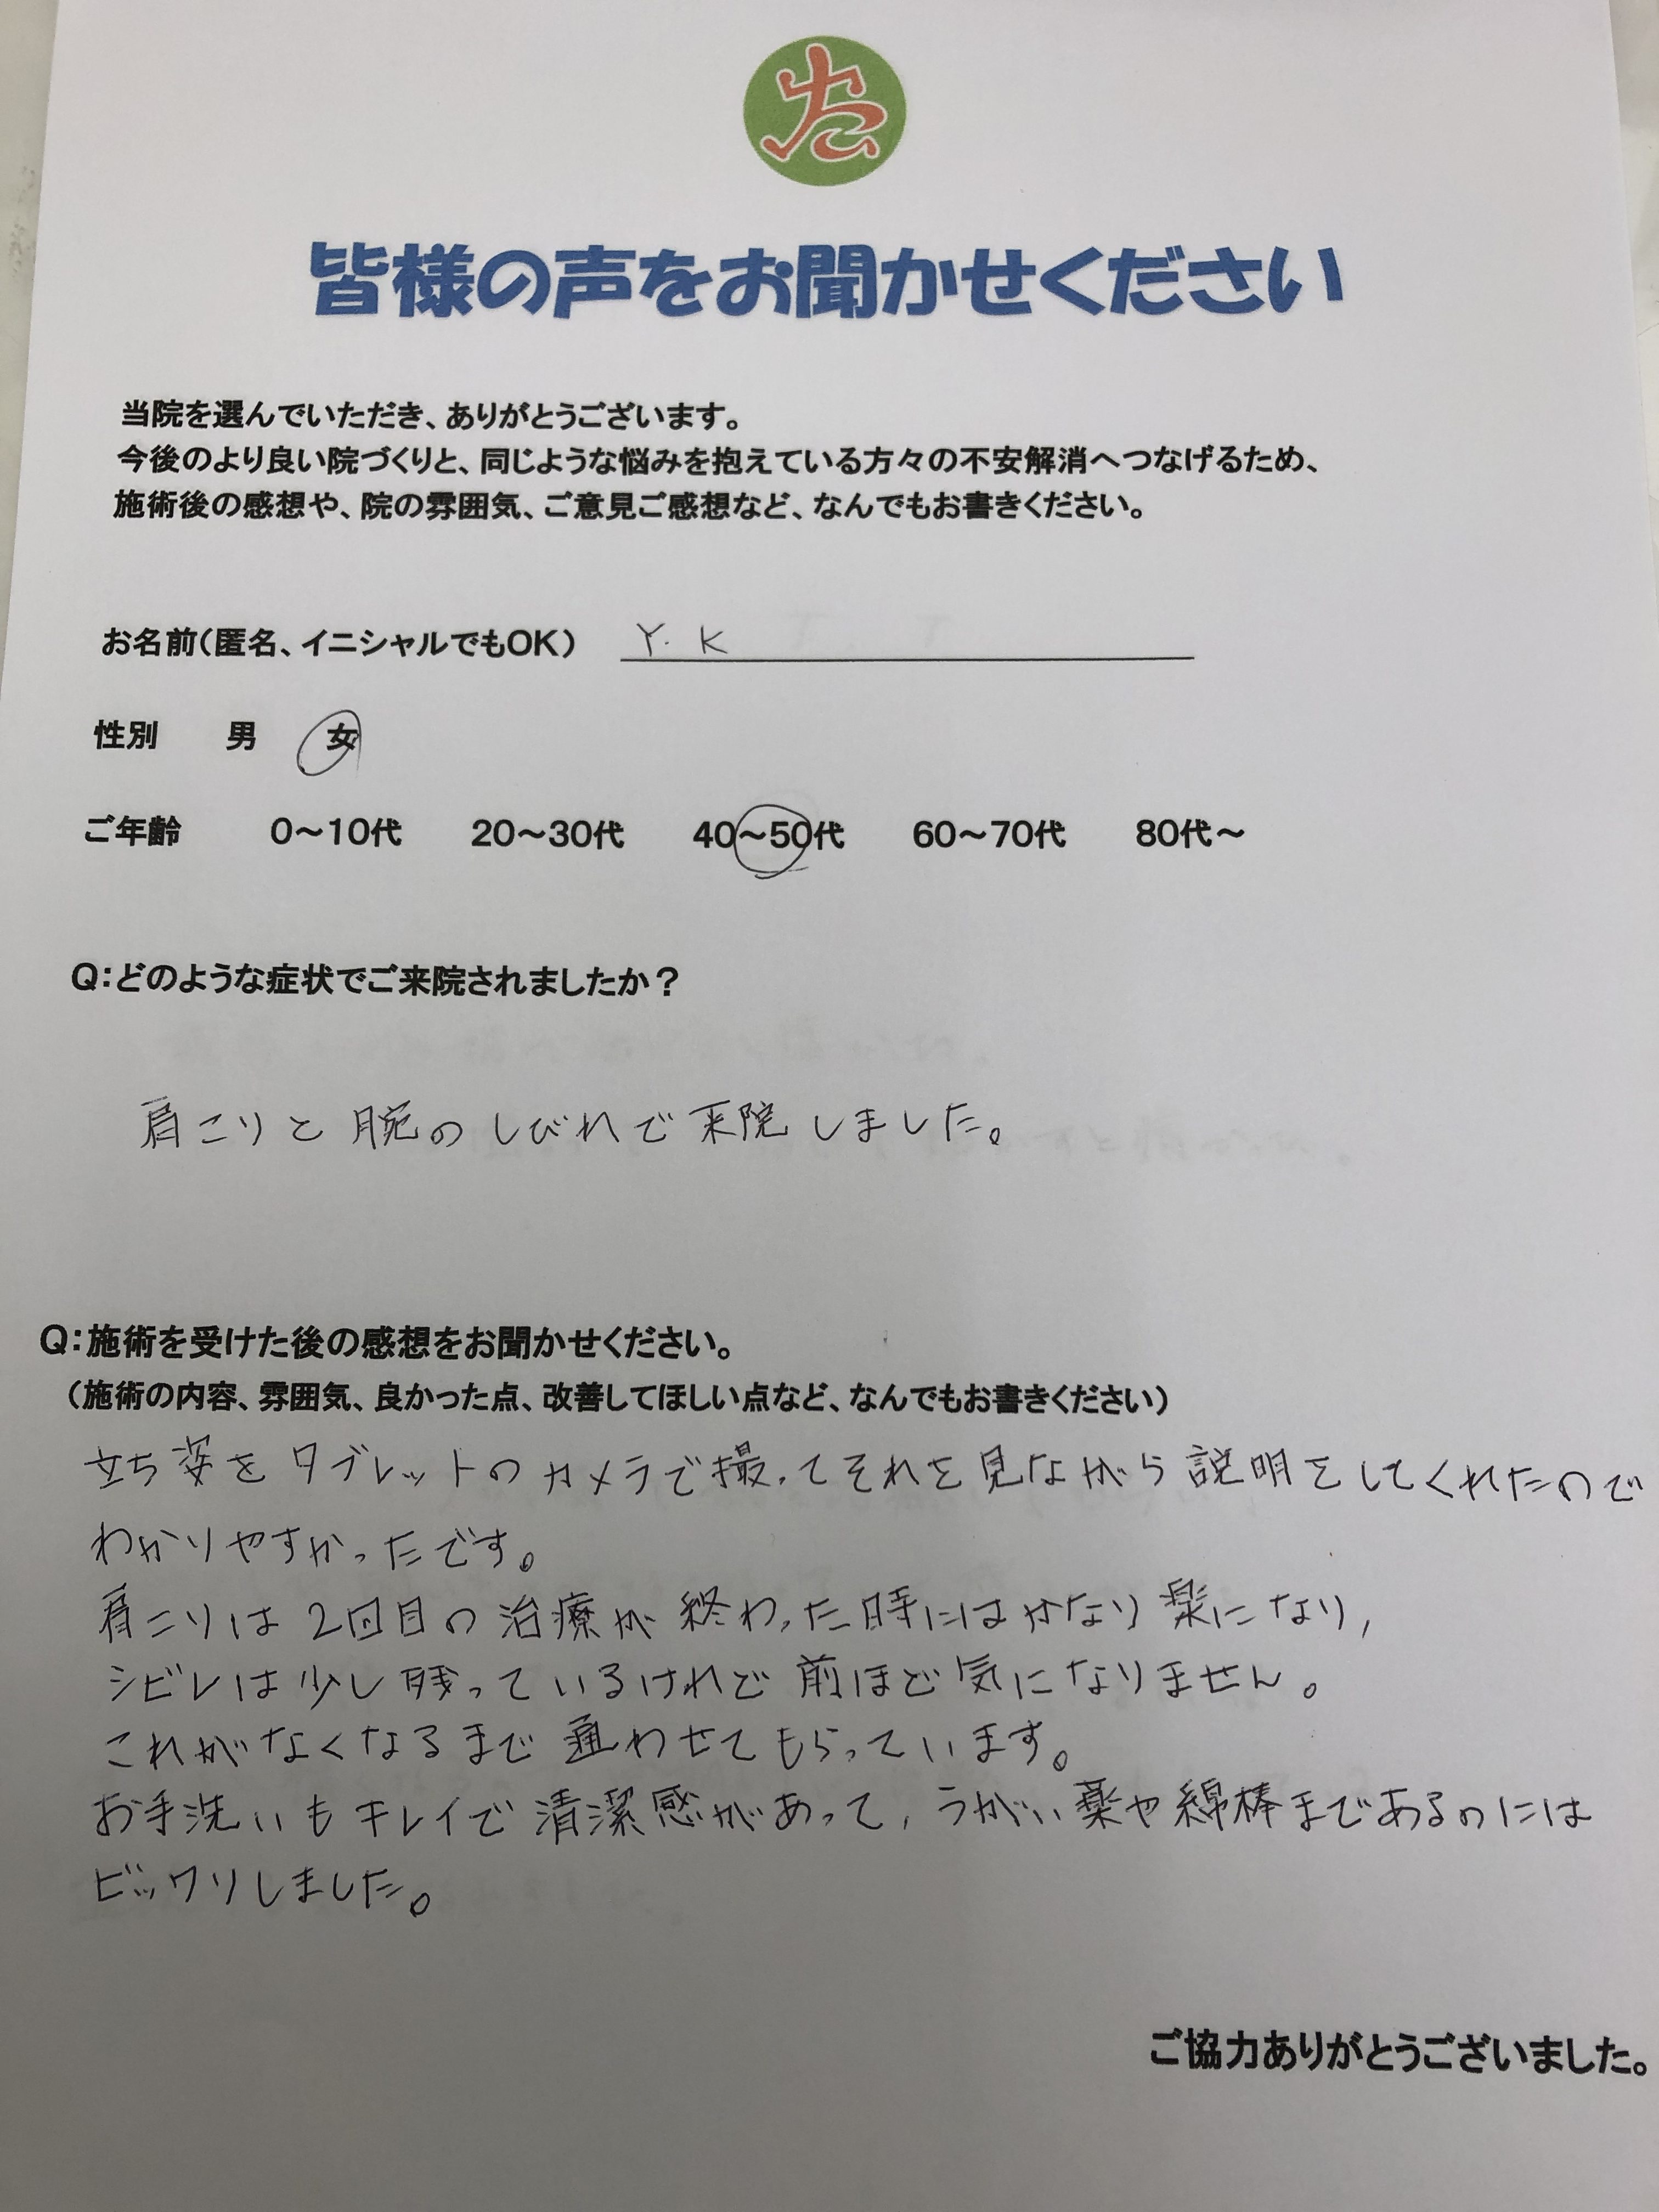 皆様の声をお聞かせください
当院を選んでいただき、ありがとうございます。
今後のより良い院づくりと、同じような悩みを抱えている方々の不安解消へつなげるため、
施術後の感想や、院の雰囲気、ご意見ご感想など、なんでもお書きください。
お名前(匿名、イニシャルでもOK) Y.K
性別 男 女
ご年齢 0〜10代 20〜30代 40〜50代 60〜70代 80代〜
Q:どのような症状でご来院されましたか?
肩こりと腕のしびれで来院しました。
Q:施術を受けた後の感想をお聞かせください。
(施術の内容、雰囲気、良かった点、改善してほしい点など、なんでもお書きください)
立ち姿をタブレットのカメラで撮ってそれを見ながら説明をしてくれたので
わかりやすかったです。
肩こりは2回目の治療が終わった時にはかなり楽になり,
シビレは少し残っているけれど前ほど気になりません。
これがなくなるまで通わせてもらっています。
お手洗いもキレイで清潔感があって,うがい薬や綿棒まであるのには
ビックリしました。
ご協力ありがとうございました。